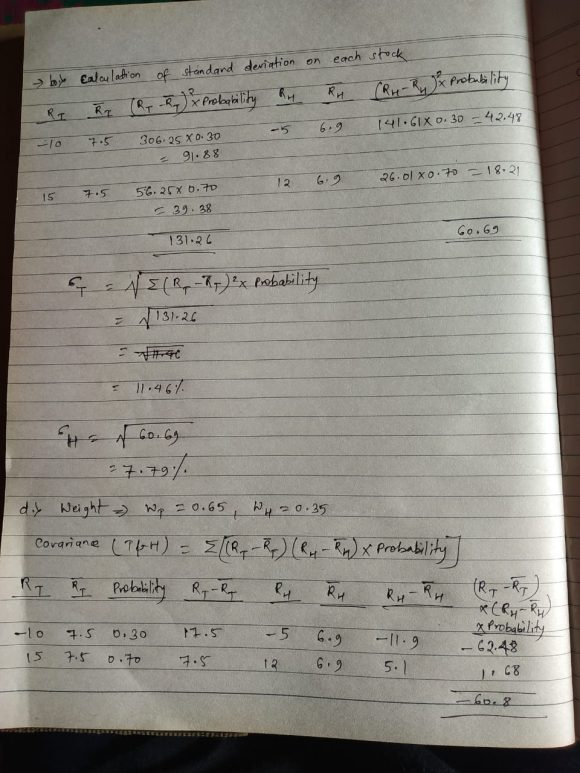 → b)> Calculation of standard deviation on each stock
R_T R̄_T (R_T - R̄_T)² x Probability R_H R̄_H (R_H - R̄_H)² x Probability
-10 7.5 306.25 X 0.30 -5 6.9 141.61 X 0.30 = 42.48
= 91.88
15 7.5 56.25 X 0.70 12 6.9 26.01 X 0.70 = 18.21
= 39.38
131.26 60.69
σ_T = √Σ(R_T - R̄_T)² x Probability
= √131.26
= √11.46
= 11.46%
σ_H = √60.69
= 7.79%
d.> Weight ⇒ W_T = 0.65, W_H = 0.35
Covariance (T & H) = Σ[(R_T - R̄_T) (R_H - R̄_H) x Probability]
R_T R̄_T Probability R_T - R̄_T R_H R̄_H R_H - R̄_H (R_T - R̄_T)
x (R_H - R̄_H)
x Probability
-10 7.5 0.30 17.5 -5 6.9 -11.9 -62.48
15 7.5 0.70 7.5 12 6.9 5.1 1.68
-60.8